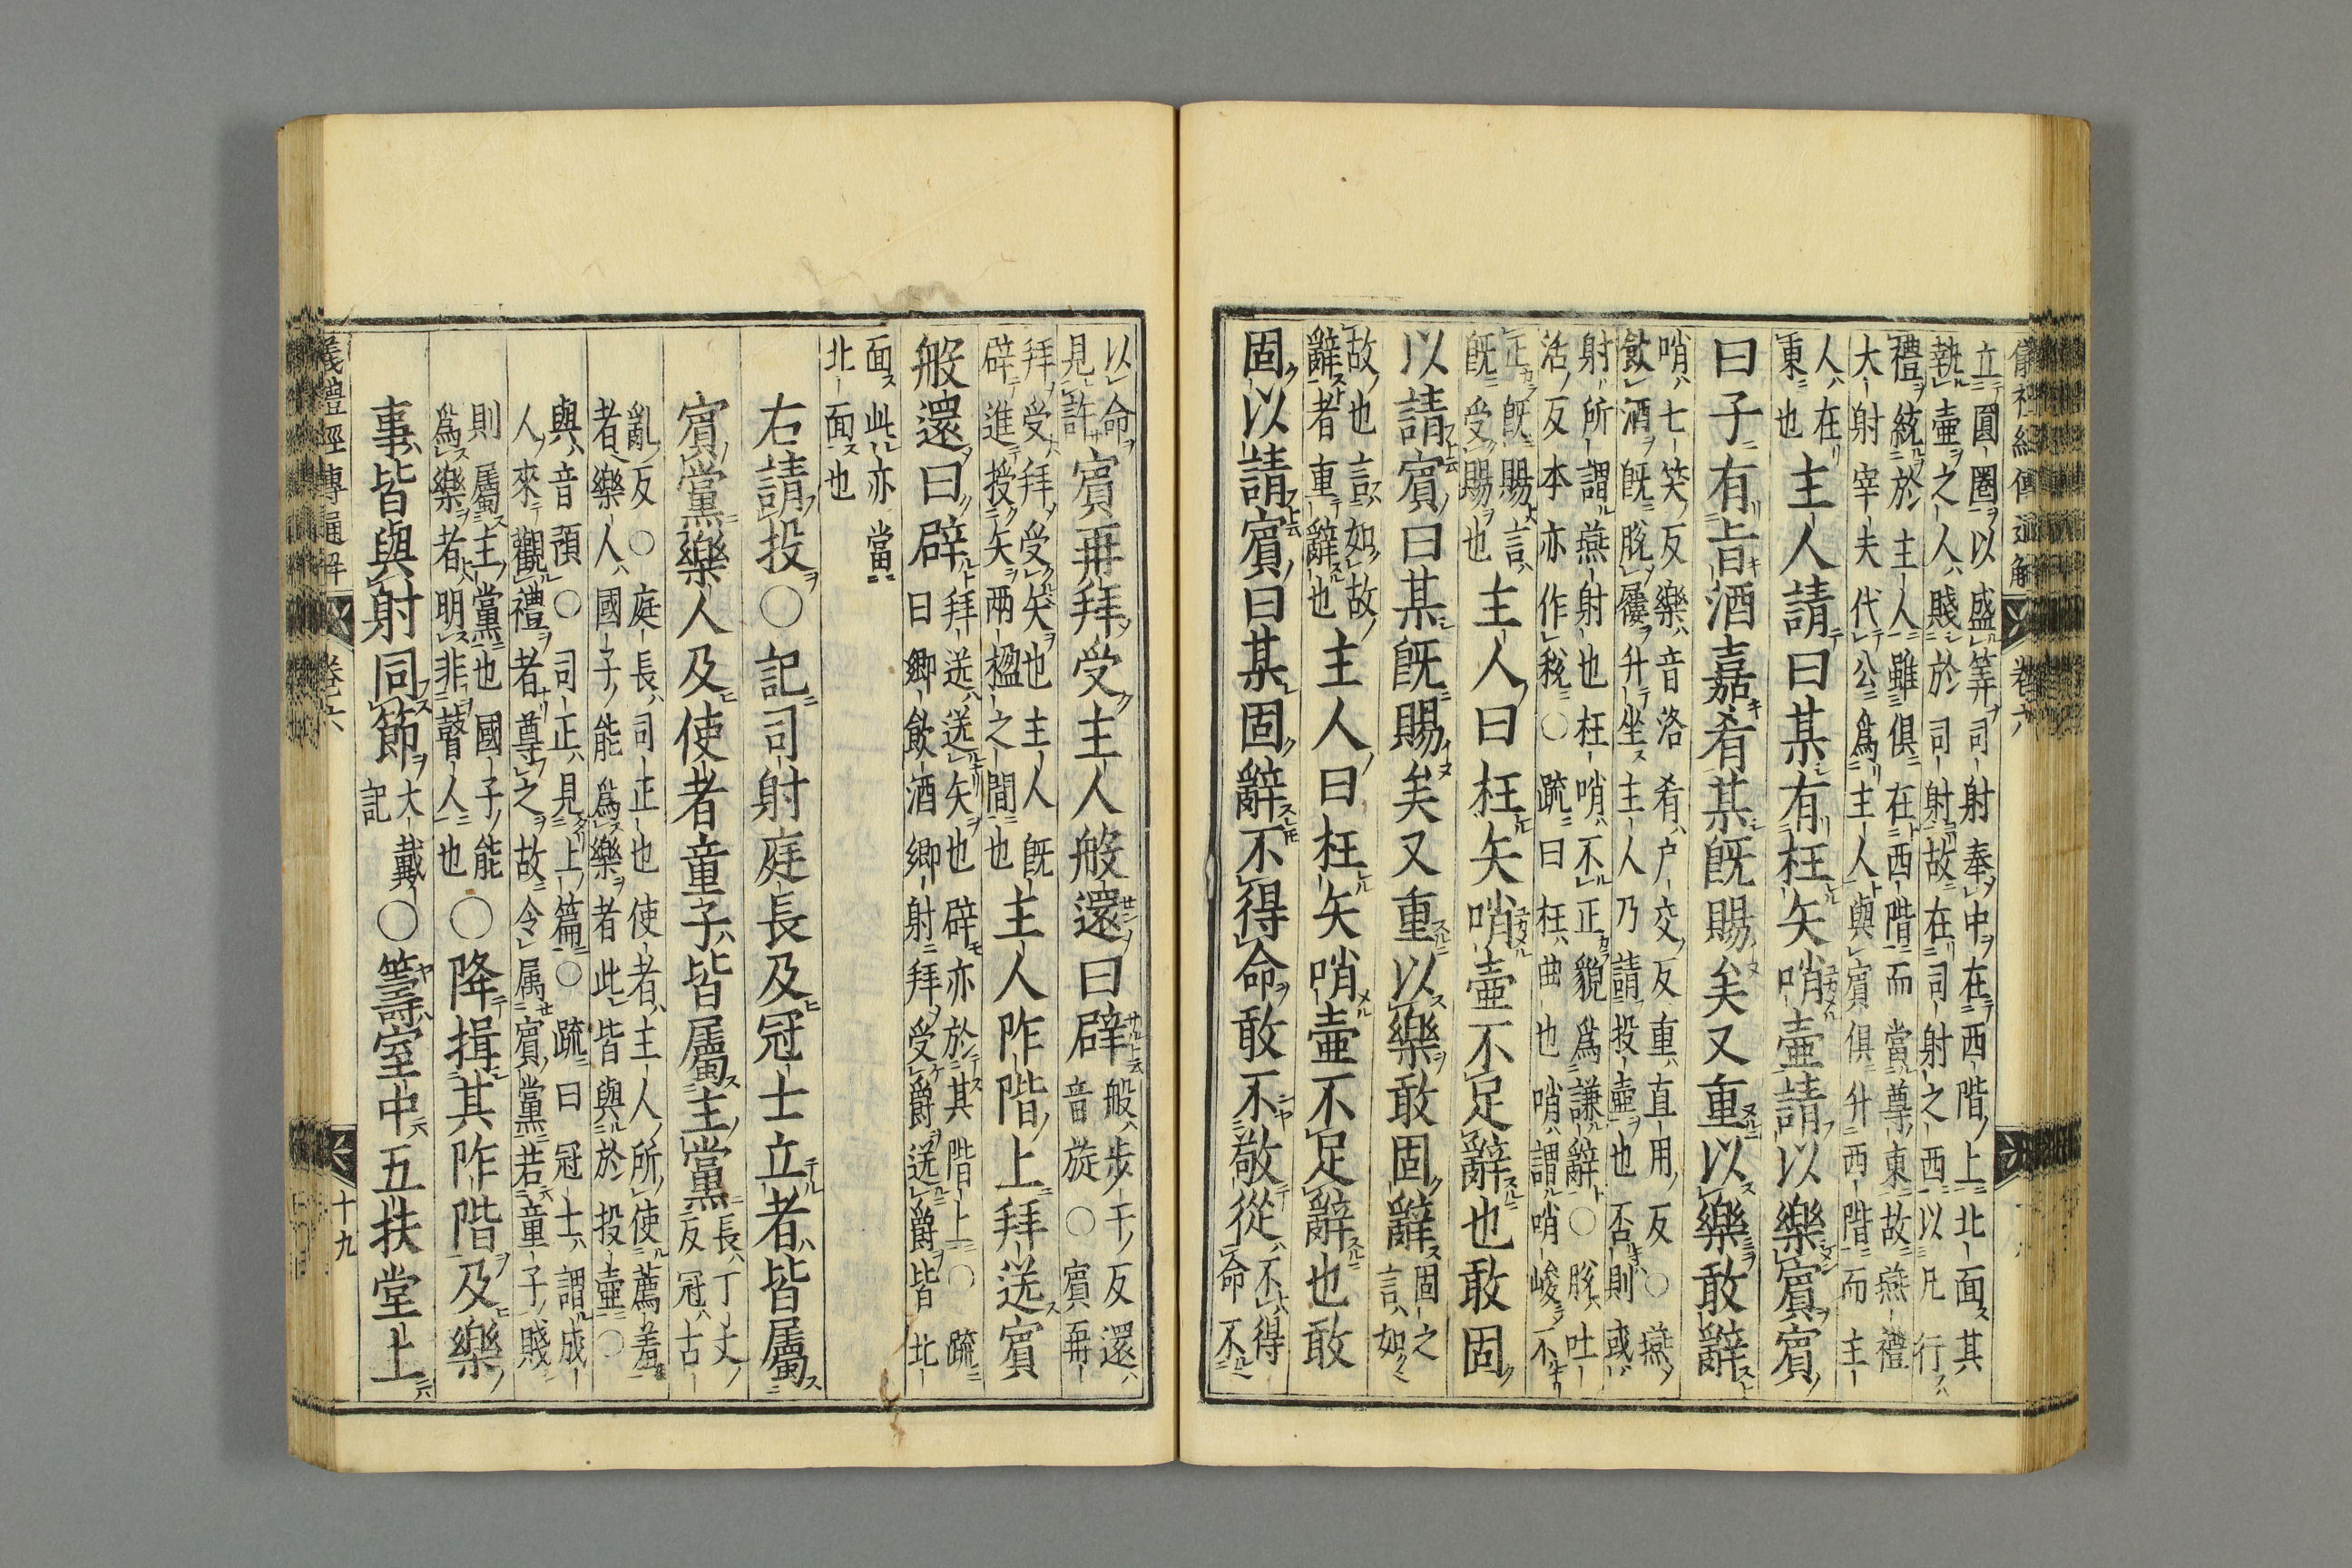 儀禮經傳通解 卷六
立圓圏以盛筭司射奉中在西階上北面其
執壺之人賤於司射故在司射之西以凡行
禮統於主人雖俱在西階而當尊東故燕禮
大射宰夫代公爲主人與賓俱升西階而主
人在
東也
主人請曰某有枉矢哨壺請以樂賓賓
曰子有旨酒嘉肴某既賜矣又重以樂敢辭
哨七笑反樂音洛肴户交反重直用反○燕
飲酒既脫屨升坐主人乃請投壺也否則或
射所謂燕射也枉哨不正貌爲謙辭○脫吐
活反本亦作稅○疏曰枉曲也哨謂哨峻不
正既賜言
既受賜也
主人曰枉矢哨壺不足辭也敢固
以請賓曰某既賜矣又重以樂敢固辭
固之
言如
故也言如故
辭者重辭也
主人曰枉矢哨壺不足辭也敢
固以請賓曰某固辭不得命敢不敬從
不得
命不
以命
見許
賓再拜受主人般還曰辟
般步干反還
音旋○賓再
拜受拜受矢也主人既
辟進授矢兩楹之間也
主人阼階上拜送賓
般還曰辟
拜送送矢也辟亦於其階上○疏
曰鄉飲酒鄉射拜受爵送爵皆北
面此亦當
北面也
右請投○記司射庭長及冠士立者皆屬
賓黨樂人及使者童子皆屬主黨
長丁丈
反冠古
亂反○庭長司正也使者主人所使薦羞
者樂人國子能爲樂者此皆與於投壺○
與音預○司正見上篇○疏曰冠士謂成
人來觀禮者尊之故令属賓黨若童子賤
則屬主黨也國子能
爲樂者明非瞽人也
○降揖其阼階及樂
事皆與射同節
大戴
記
○籌室中五扶堂上
儀禮經傳通解 卷六 十九